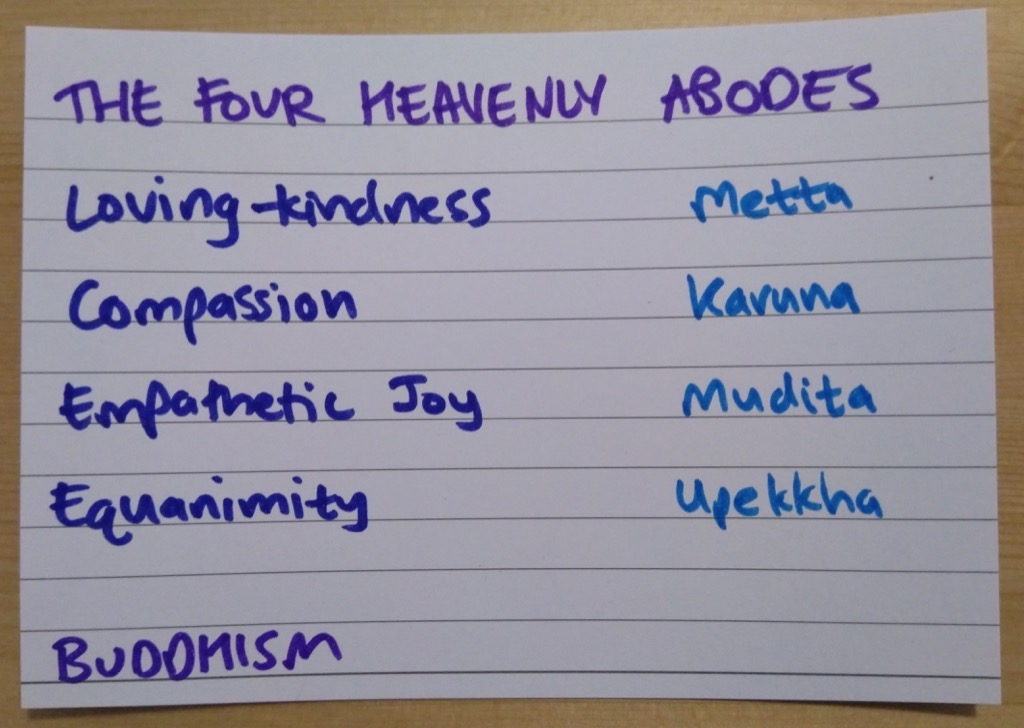 THE FOUR HEAVENLY ABODES
Loving-kindness Metta
Compassion Karuna
Empathetic Joy Mudita
Equanimity Upekkha
BUDDHISM